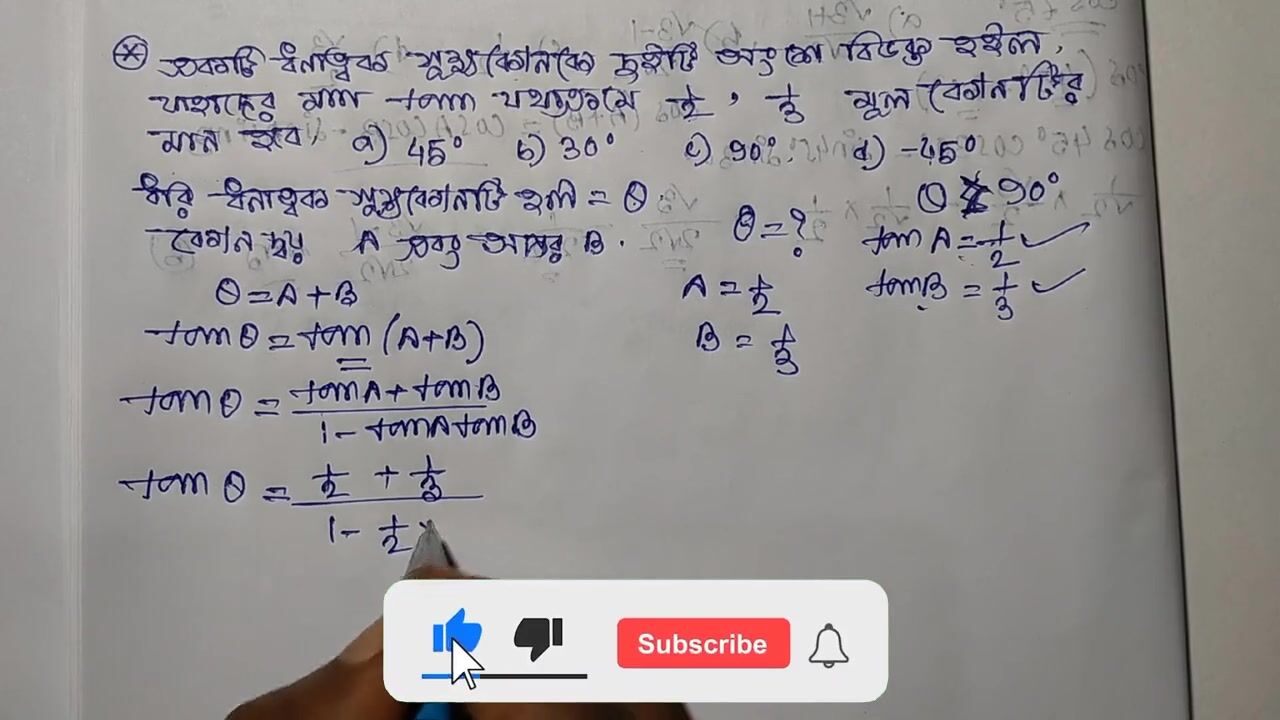 একটি ধনাত্মক সূক্ষ্মকোনকে দুইটি অংশে বিভক্ত হইল,
যাহাদের মান tan যথাক্রমে 1/2, 1/3 মূল কোনটির
মান হবে, a) 45° b) 30° c) 90°. d) -45°
ধরি ধনাত্মক সূক্ষ্মকোনটি হল = θ
কোন দ্বয় A এবং অপর B.
θ = ?
θ 90°
tan A = 1/2 ✓
tan B = 1/3 ✓
A = 1/2
B = 1/3
θ = A + B
tan θ = tan (A+B)
tan θ = tan A + tan B / 1 - tan A tan B
tan θ = 1/2 + 1/3 / 1 - 1/2
Subscribe